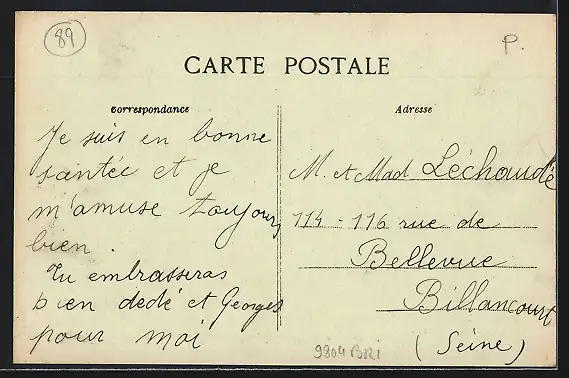 89
P.
CARTE POSTALE
Correspondance
Adresse
Je suis en bonne
santée et je
m'amuse toujours
bien.
Tu embrasseras
bien dédé et Georges
pour moi
M. et Mad Léchaudé
114-116 rue de
Bellevue
Billancourt
(Seine)
9804 BRI